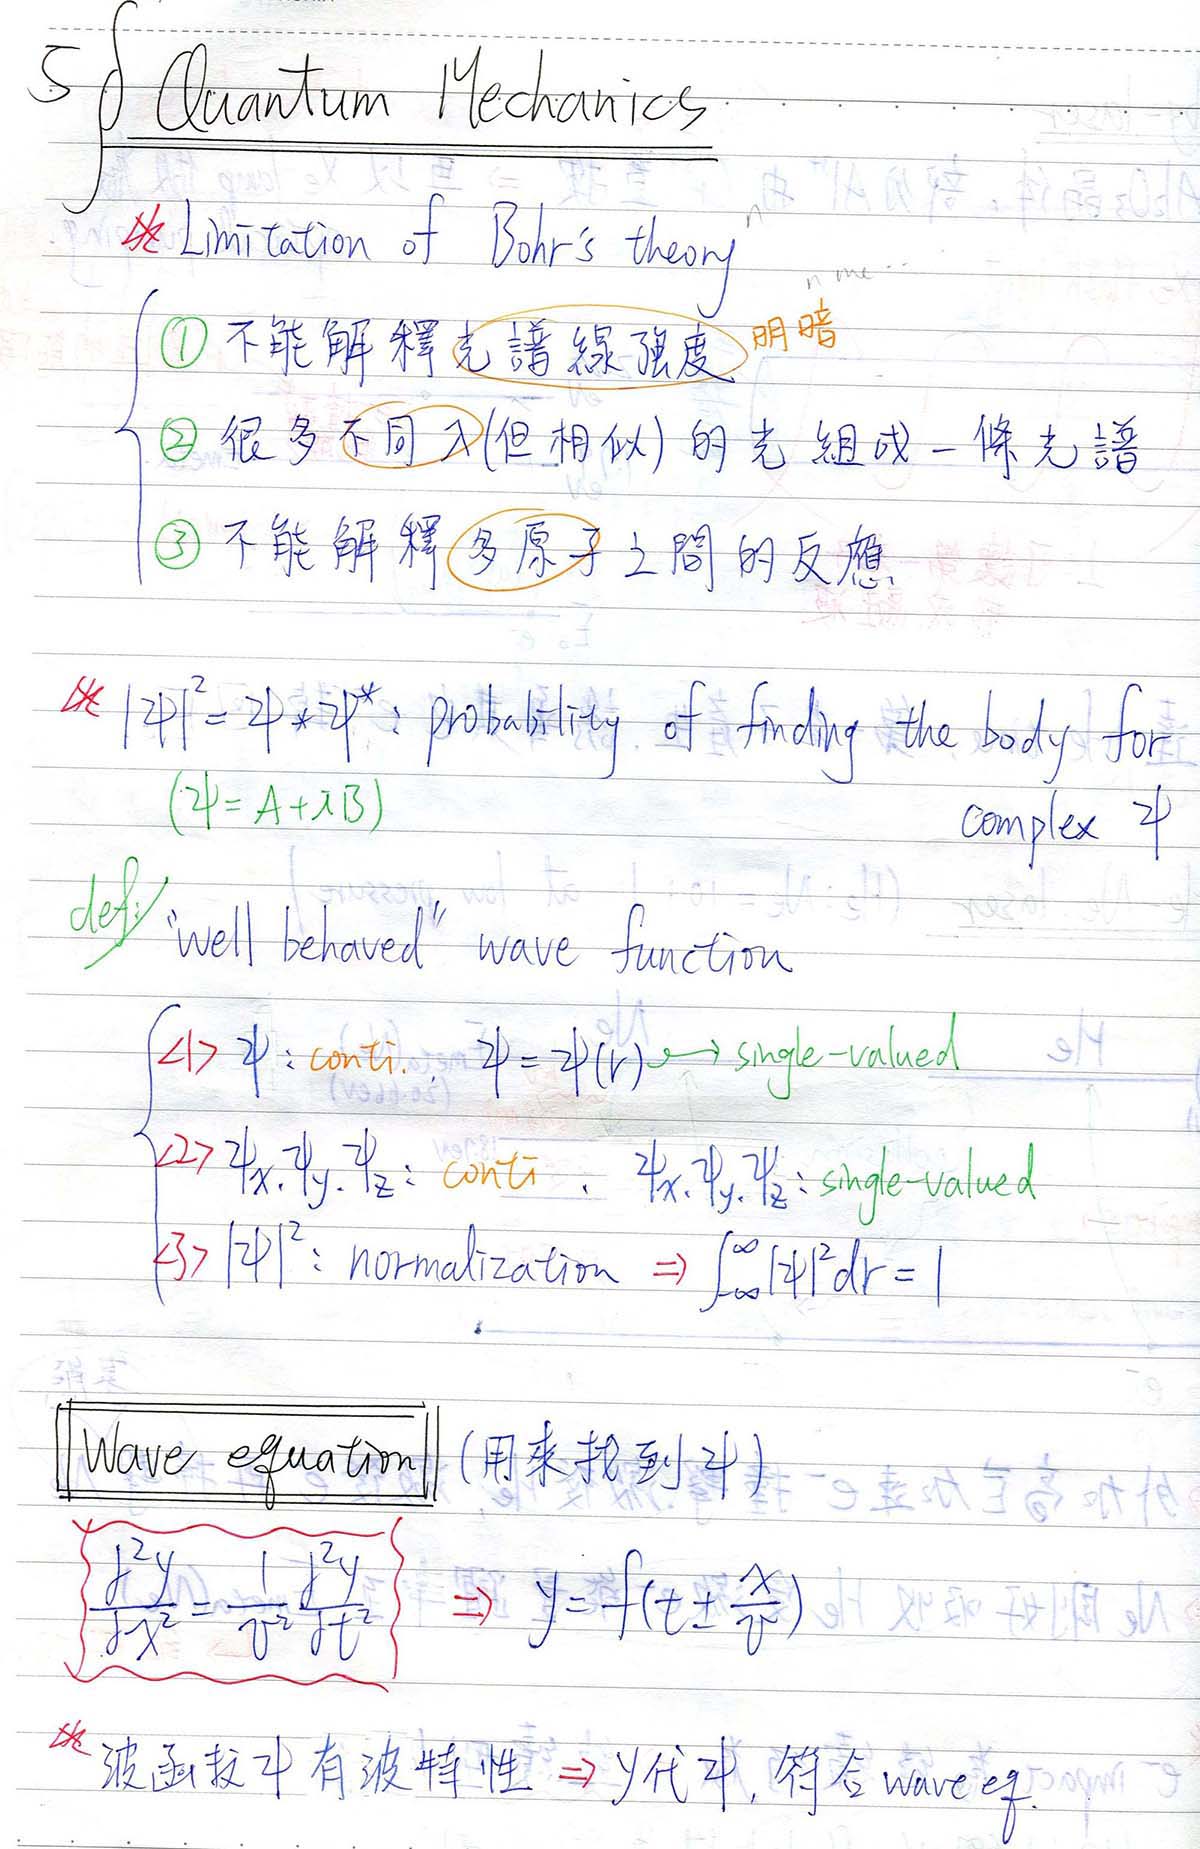 5§ Quantum Mechanics
Limitation of Bohr's theory
① 不能解釋光譜線強度 明暗
② 很多不同λ(但相似)的光組成一條光譜
③ 不能解釋多原子之間的反應
|Ψ|² = Ψ*Ψ* : probability of finding the body for
(Ψ = A + iB)
complex Ψ
def: "well behaved" wave function
<1> Ψ : conti. , Ψ = Ψ(r) → single-valued
<2> Ψx.Ψy.Ψz : conti . Ψx.Ψy.Ψz : single-valued
<3> |Ψ|² : normalization ⇒ ∫_{-∞}^{∞} |Ψ|² dr = 1
Wave equation (用來找到Ψ)
∂²y/∂x² = 1/v² ∂²y/∂t² ⇒ y = f(t ± x/v)
波函数Ψ有波特性 ⇒ y代Ψ, 符合wave eq.